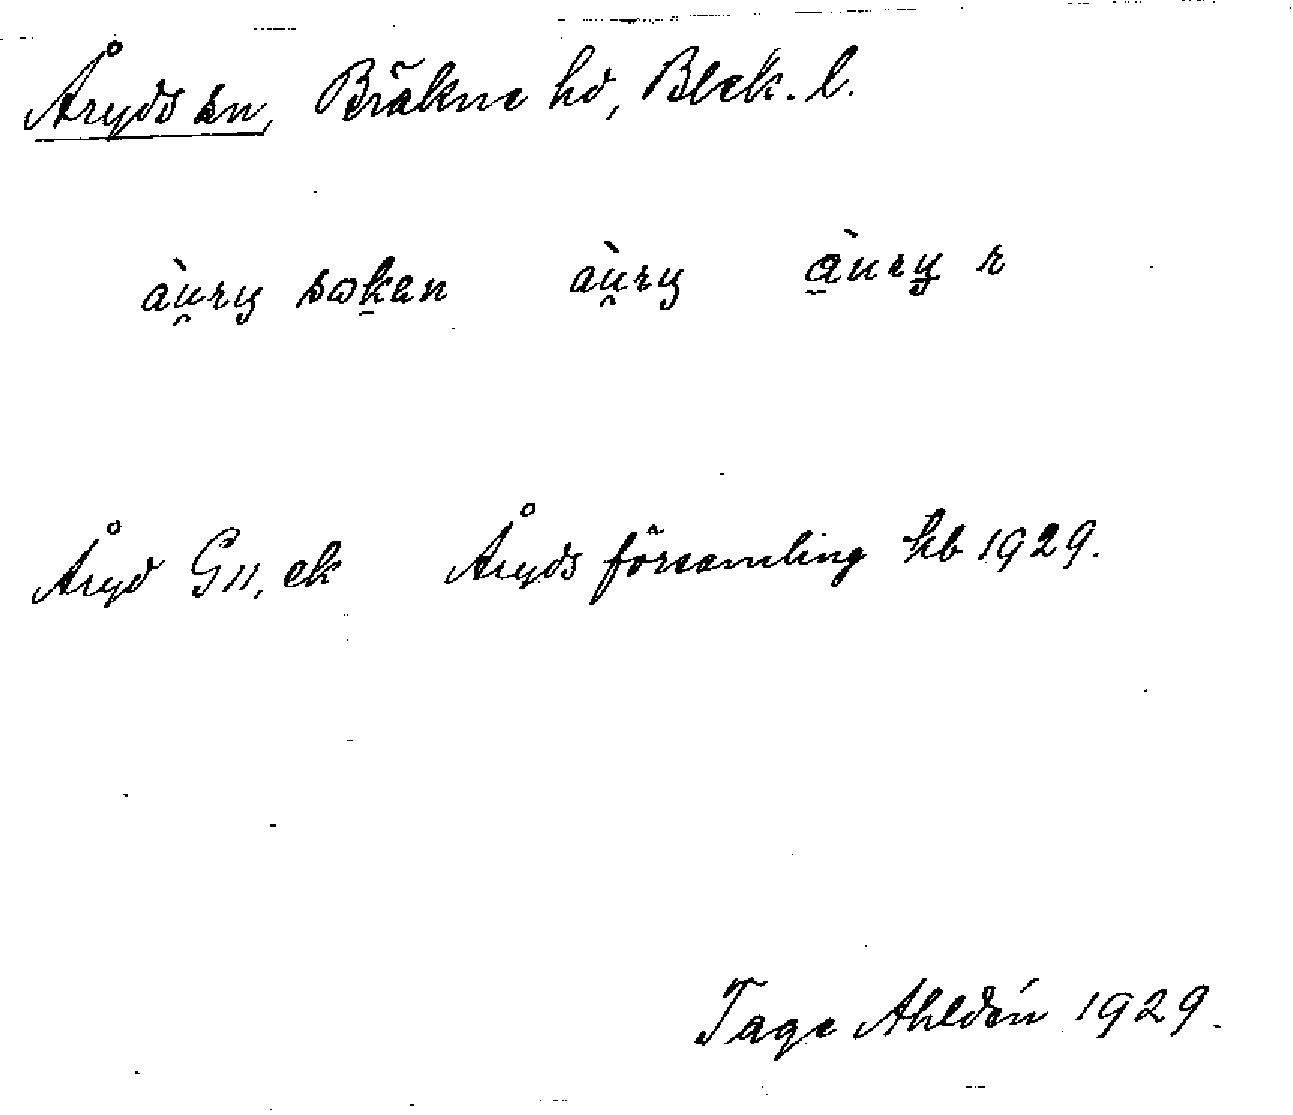 Åryds sn, Bräkne hd, Blek. l.
àu̯ry soken àu̯ry àury r
Åryd G11, ek Åryds församling kb 1929.
Tage Ahldén 1929.